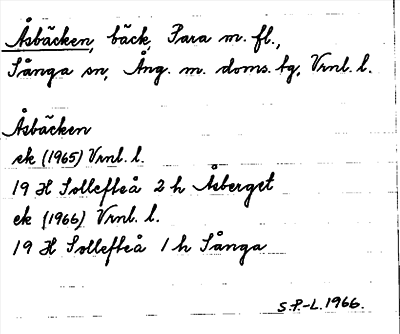 Åsbäcken, bäck, Para m. fl.,
Sånga sn, Ång. m. doms. tg, Vrnl. l.
Åsbäcken
ek (1965) Vrnl. l.
19 H Sollefteå 2 h Åsberget
ek (1966) Vrnl. l.
19 H Sollefteå 1 h Sånga
S.P.-L. 1966.